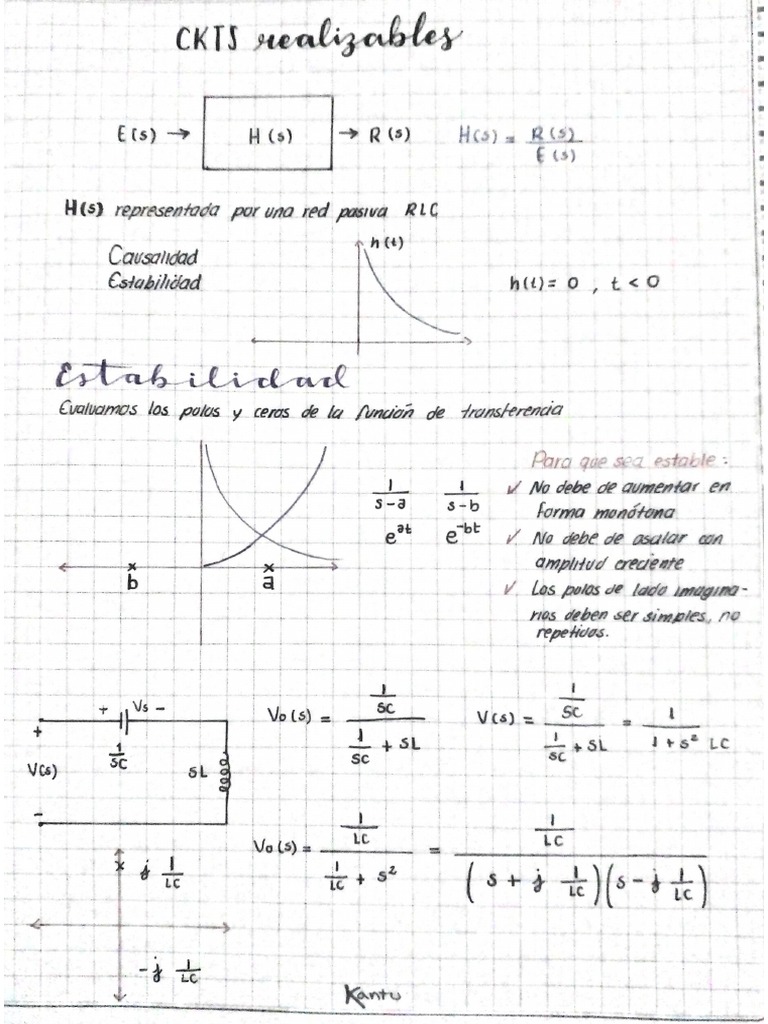 CKTS realizables
E(s) → H(s) → R(s) H(s) = R(s) / E(s)
H(s) representada por una red pasiva RLC
Causalidad
Estabilidad
h(t)
h(t) = 0 , t < 0
Estabilidad
Evaluamos los polos y ceros de la función de transferencia
b
a
1/(s-a) 1/(s-b)
e^at e^-bt
Para que sea estable:
✓ No debe de aumentar en
forma monótona
✓ No debe de osalar con
amplitud creciente
✓ Los polos de lado imagina-
rios deben ser simples, no
repetidos.
+ Vs -
+
1/SC
V(s)
SL
-
Vo(s) = (1/SC) / (1/SC + SL)
V(s) = (1/SC) / (1/SC + SL) = 1 / (1 + s² LC)
Vo(s) = (1/LC) / (1/LC + s²) = (1/LC) / ((s + j 1/LC)(s - j 1/LC))
j 1/LC
-j 1/LC
Kantu